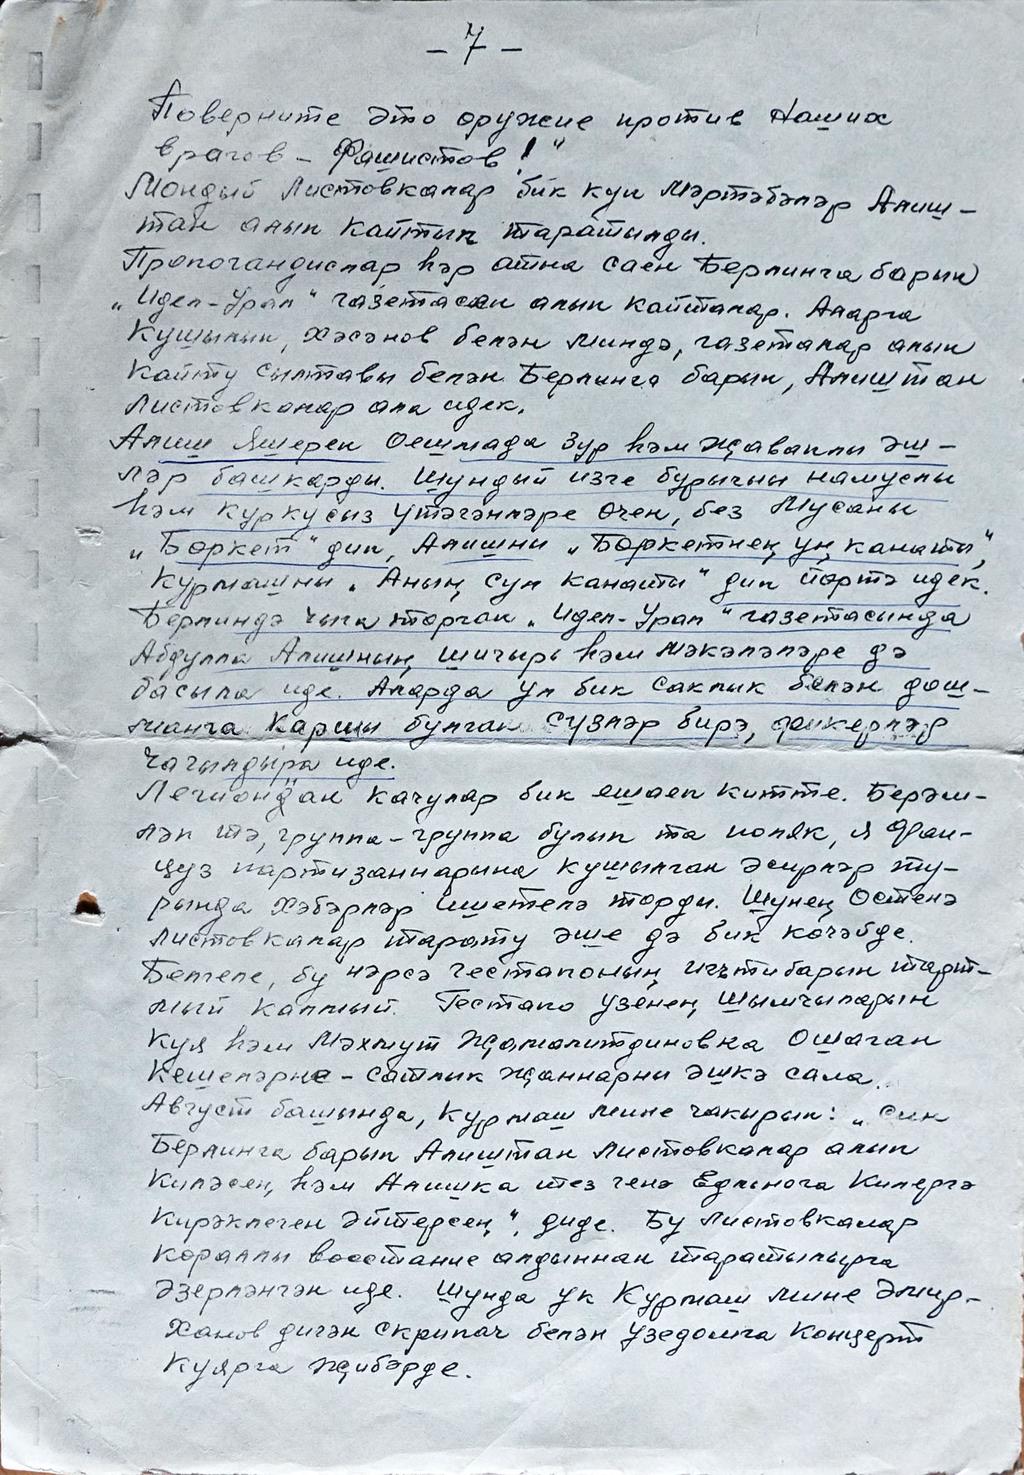 – 7 –
Поверните это оружие против Наших
врагов – Фашистов!"
Мондый Листовкалар бик күп Мәртәбәләр Алиш-
тан алып кайтып таратылды.
Пропогандислар һәр атна саен Берлинга барып
„Идел-Урал" газетасын алып кайталар. Аларга
Кушылып, Хәсәнов белән миндә, газеталар алып
кайту сылтавы белән Берлинга барып, Алиштан
листовкалар ала идек.
Алиш Яшерен Оешмада зур һәм Җаваплы эш-
ләр башкарды. Шундый изге бурычын намуслы
һәм куркусыз үтәгәнләре өчен, без Мусаны
„Бөркет" дип, Алишны „Бөркетнең уң канаты",
Курмашны „Аның сул канаты" дип йөртә идек.
Берлиндә чыга торган „Идел-Урал" газетасында
Абдулла Алишның шигырь һәм мәкаләләре дә
басыла иде. Аларда ул бик саклык белән дош-
манга каршы булган сүзләр бирә, фикерләр
чагылдыра иде.
Легионд"ан качулар бик ешаеп китте. Берәм-
ләп тә, группа-группа булып та поляк, я фран-
цуз партизаннарына кушылган әсирләр ту-
рында хәбәрләр ишетелә торды. Шунең өстенә
листовкалар тарату эше дә бик көчәйде.
Бетеле, бу нәрсә гестапоның игътибарын тарт-
мый калмый. Гестапо үзенең шымчыларын
куя һәм Мәхмут Җамалитдиновка ошаган
кешеләрне – сатлык җаннарны эшкә сала.
Август башында, Курмаш мине чакырып: „син
Берлинга барып Алиштан листовкалар алып
киләсең, һәм Алишка тез генә Едлынога килергә
кирәклеген әйтерсең", диде. Бу листовкалар
кораллы восстание алдыннан таратылырга
әзерләнгән иде. Шунда ук Курмаш мине Әмир-
ханов дигән скрипач белән Узедомга концерт
куярга җибәрде.